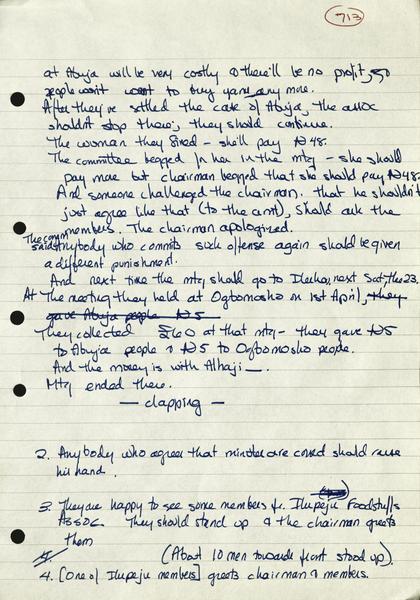 713
at Abuja will be very costly & there'll be no profit, so
people won't want to buy yams any more.
After they've settled the case of Abuja, the assoc
shouldn't stop there; they should continue.
The woman they fined - she'll pay ₦48.
The committee begged for her in the mtg - she should
pay more but chairman begged that she should pay ₦48.
And someone challenged the chairman, that he shouldn't
just agree like that (to the amt), should ask the
members. The chairman apologized.
The comm said anybody who commits such offense again should be given
a different punishment.
And next time the mtg should go to Ilesha, next Sat, the 23.
At the meeting they held at Ogbomosho on 1st April, they
gave Abuja people ₦5
They collected £60 at that mtg - they gave ₦5
to Abuja people & ₦5 to Ogbomosho people.
And the money is with Alhaji __.
Mtg ended there.
— clapping —
2. Anybody who agree that minutes are correct should raise
his hand.
3. They are happy to see some members fr. Ilupeju Foodstuffs
Assoc. They should stand up & the chairman greets
them
(About 10 men towards front stood up).
4. [One of Ilupeju members] greets chairman & members.